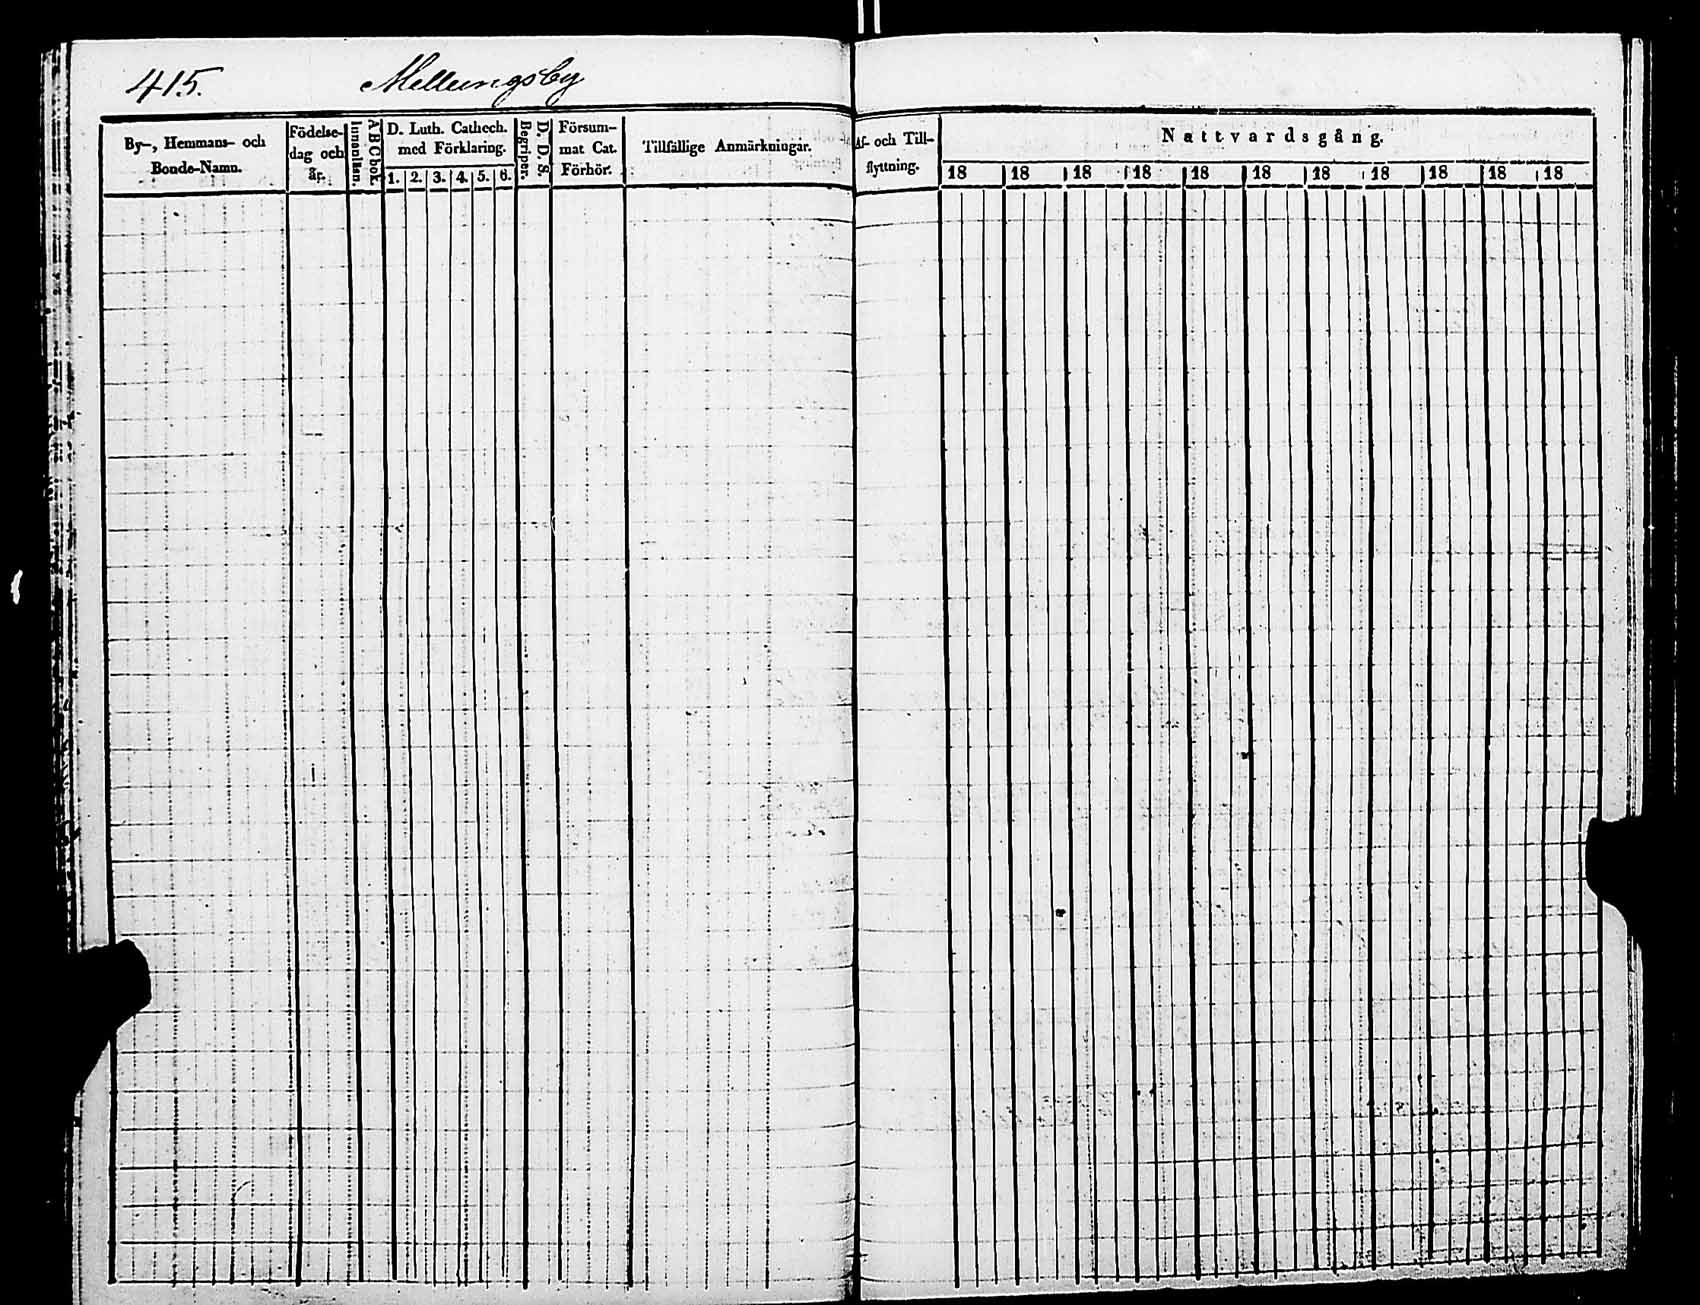 415. Mellungsby
By-, Hemmans- och
Bonde-Namn.
Födelse-
dag och
år.
Innanläsn.
A B C bok.
D. Luth. Cathech.
med Förklaring.
1. 2. 3. 4. 5. 6.
Begriper.
D. D. S.
Försum-
mat Cat.
Förhör.
Tillfällige Anmärkningar.
Af- och Till-
flyttning.
Nattvardsgång.
18 18 18 18 18 18 18 18 18 18 18